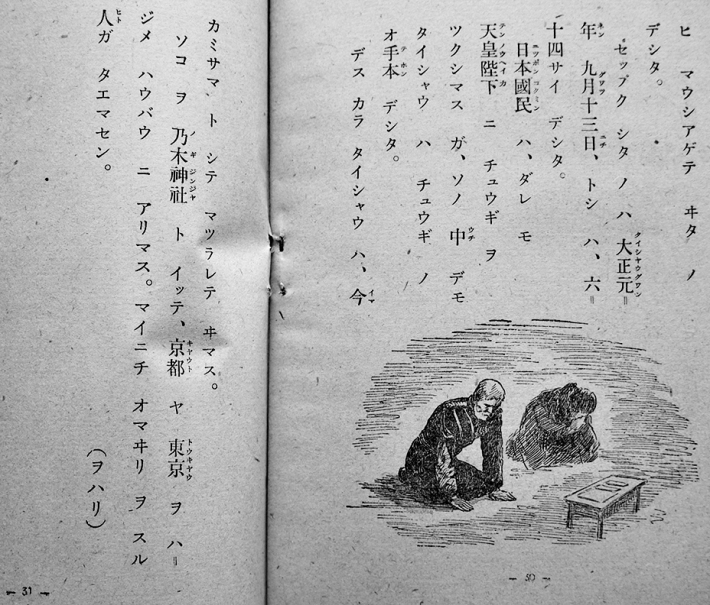 ヒ マウシアゲテ ヰタ ノ
デシタ。
セップク シタ ノ ハ 大正元＝
年 九月十三日、トシ ハ、六＝
十四サイ デシタ。
日本國民 ハ、ダレ モ
天皇陛下 ニ チュウギ ヲ
ツクシマス ガ、ソノ 中 デモ
タイシャウ ハ チュウギ ノ
オ手本 デシタ。
デス カラ タイシャウ ハ、今
― 30 ―
カミサマ ト シテ マツラレテ ヰマス。
ソコ ヲ 乃木神社 ト イッテ、京都 ヤ 東京 ヲ ハ＝
ジメ ハウバウ ニ アリマス。マイニチ オマヰリ ヲ スル
人ガ タエマセン。
（ヲハリ）
― 31 ―